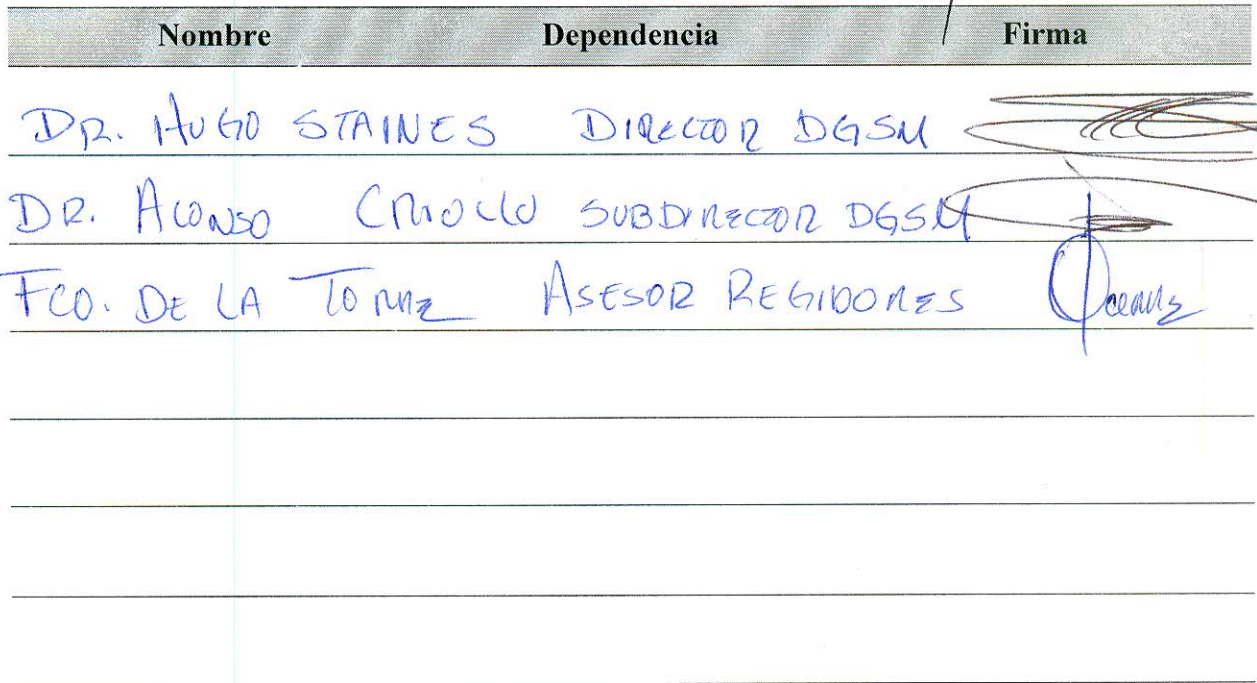 Nombre Dependencia Firma
DR. HUGO STAINES DIRECTOR DGSM
DR. ALONSO CRIOLLO SUBDIRECTOR DGSM
FCO. DE LA TORRE ASESOR REGIDORES